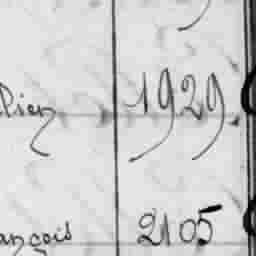 lien 1929.
ançois 2105